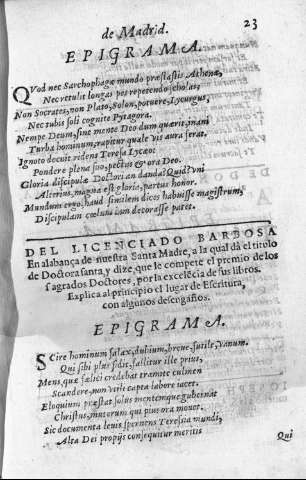 de Madrid. 23
EPIGRAMA.
QVod nec Sarchophagæ mundo præstastis Athenæ,
Nec retulit longas per repetendo scholas;
Non Socrates, non Plato, Solon, potuere, Lycurgus,
Nec tubis soli cognite Pytagora.
Nempe Deum, sine mente Deo dum quærit, inani
Turba hominum, rapitur quale vis aura ferat.
Ignoto decuit redens Teresa Lycæo:
Pondere plena suo, pectus & ora Deo.
Gloria discipulæ Doctori an danda? Quid? Vni
Alterius, magna est gloria, partus honor.
Mundum ergo, haud similem dices habuisse magistrum,
Discipulam cœlum iam decorasse patet.
DEL LICENCIADO BARBOSA
En alabança de nuestra Santa Madre, a la qual dà el titulo
de Doctora santa, y dize, que le compete el premio de los
sagrados Doctores, por la excelẽcia de sus libros.
Explica al principio el lugar de Escritura,
con algunos desengaños.
EPIGRAMA.
SCire hominum falax, dubium, breue, futile, vanum.
Qui sibi plus fidit, fallitur ille prius,
Mens, quæ fælici credebat tramite culmen
Scandere, non vitæ capta labore iacet.
Eloquium præstat solus mentemque gubernat
Christus, mutorum qui pius ora mouet.
Sic documenta leuis spernens Teresia mundi,
Alta Dei propijs consequitur meritis
Qui